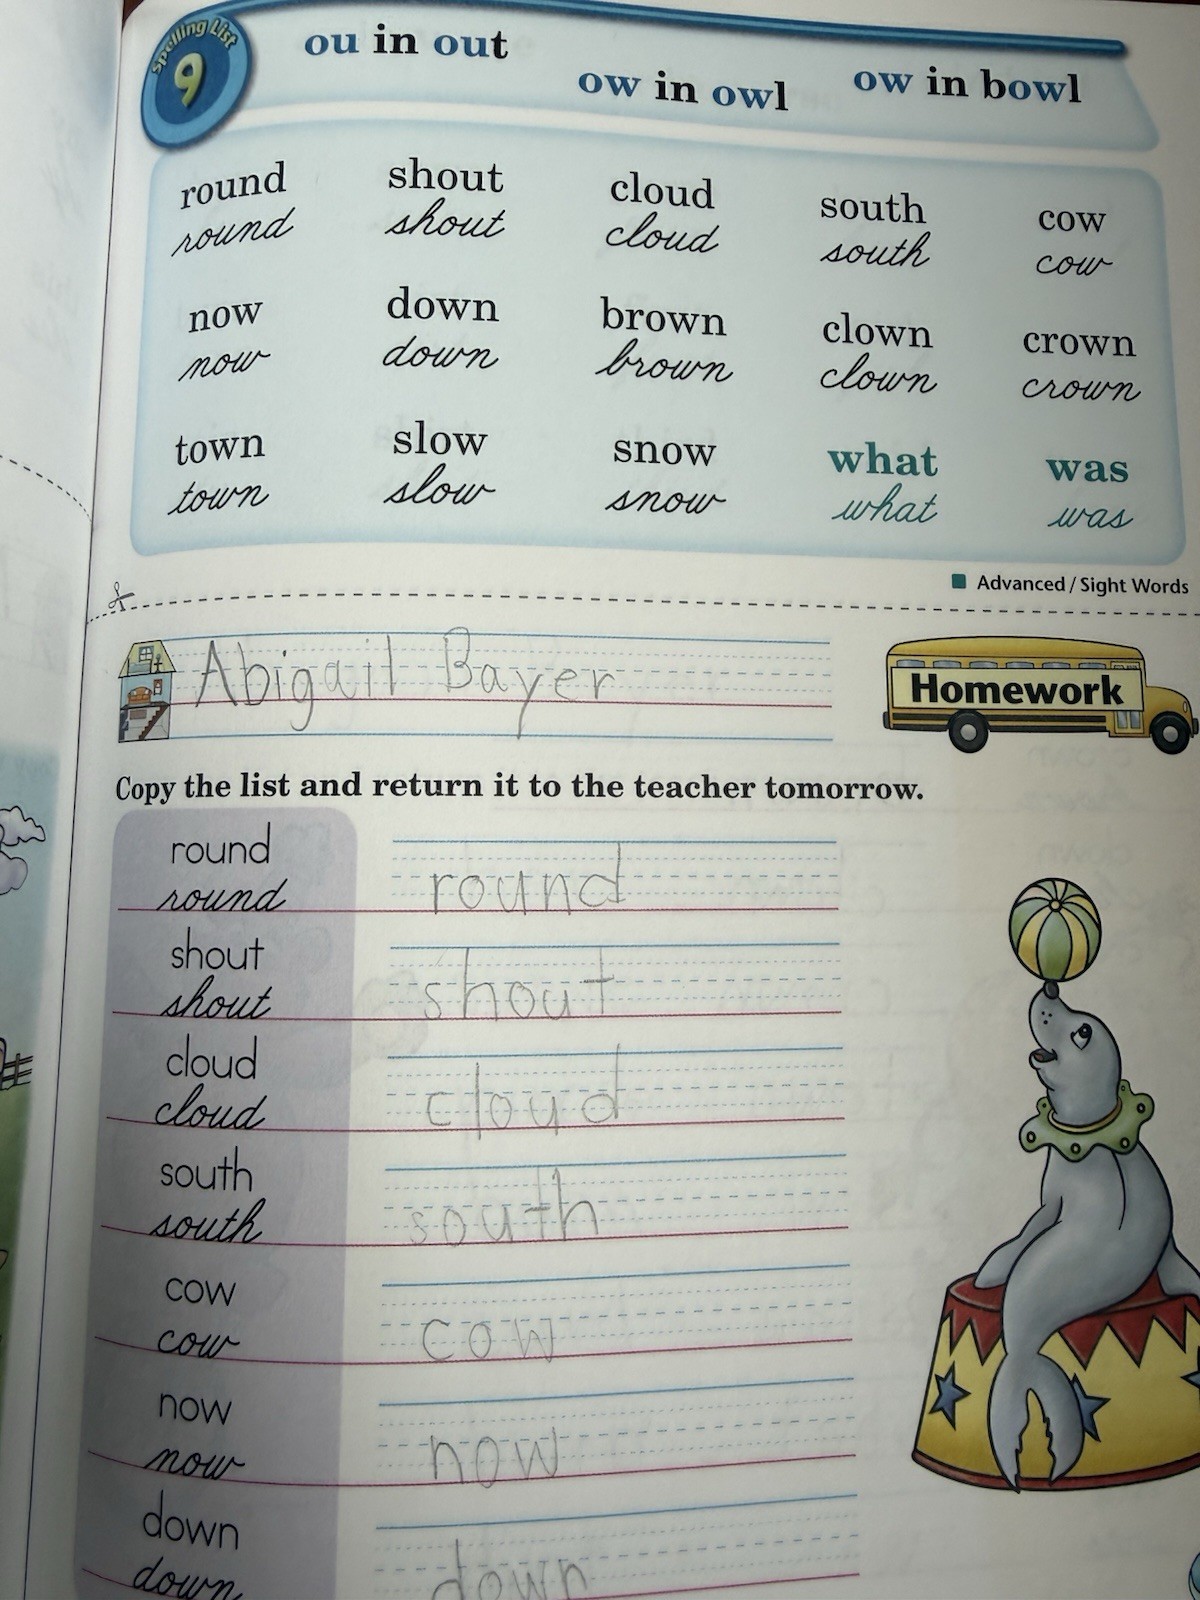 Spelling List
9
ou in out
ow in owl
ow in bowl
round shout cloud south cow
round shout cloud south cow
now down brown clown crown
now down brown clown crown
town slow snow what was
town slow snow what was
Advanced / Sight Words
Abigail Bayer
Homework
Copy the list and return it to the teacher tomorrow.
round
round round
shout
shout shout
cloud
cloud cloud
south
south south
cow
cow cow
now
now now
down
down down